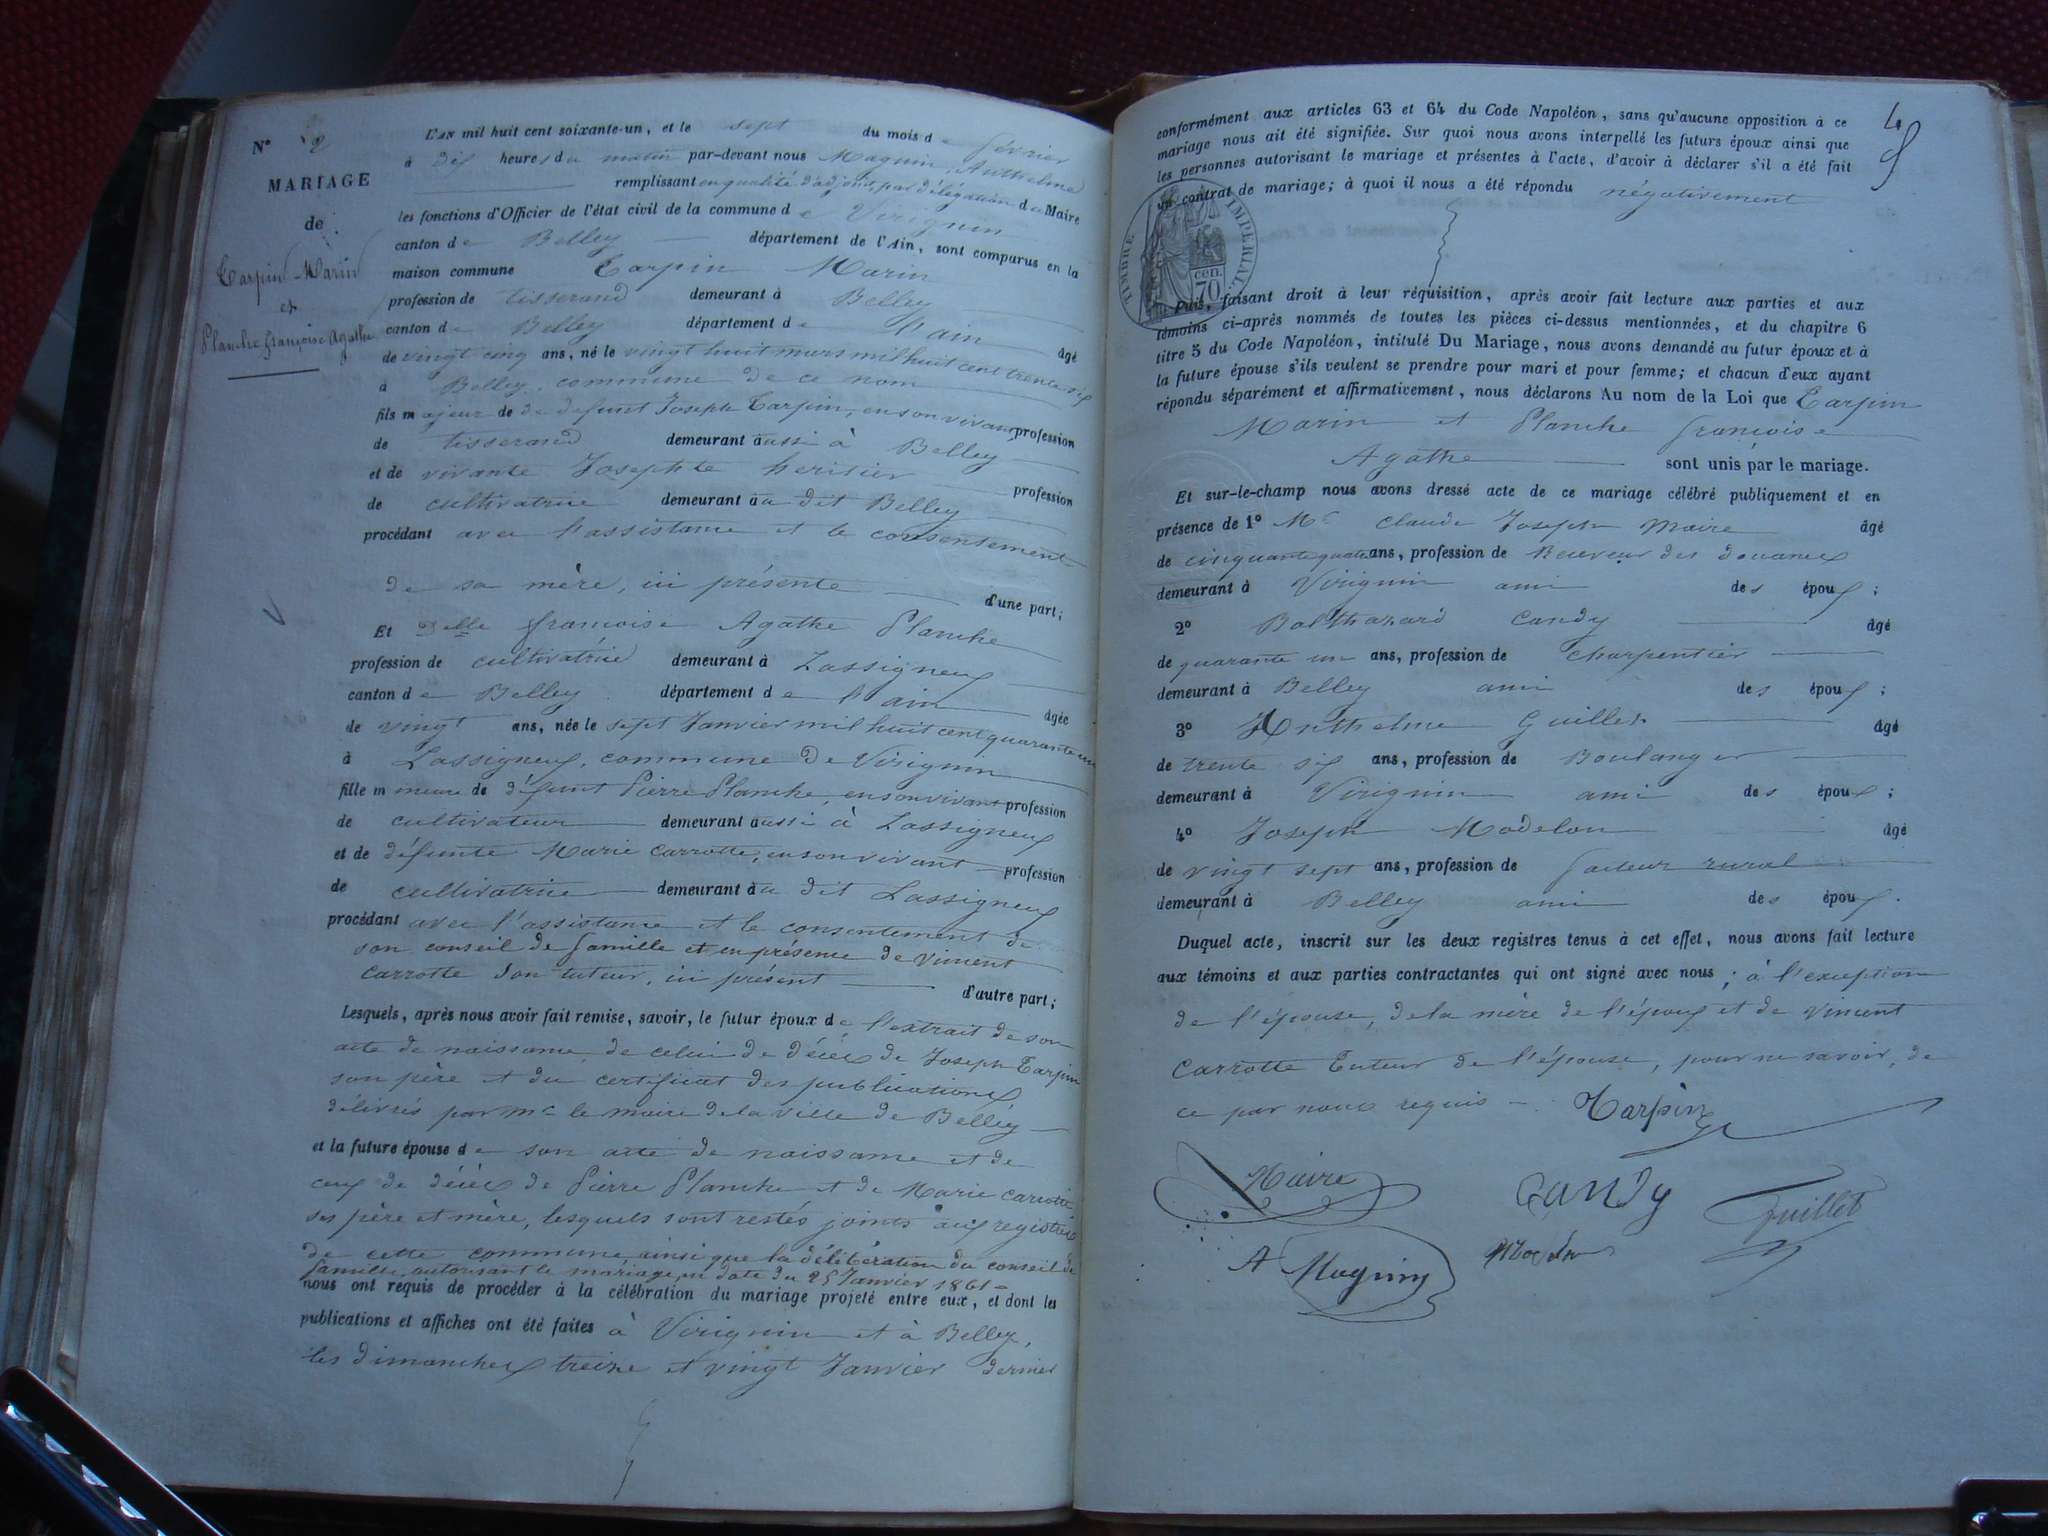 N° 2
MARIAGE
de
Carpin Marin
et
Planche françoise Agathe
L'AN mil huit cent soixante-un, et le sept du mois de février
à dix heures du matin par-devant nous Magnin Anthelme
remplissant en qualité d'adjoint par délégation du Maire
les fonctions d'Officier de l'état civil de la commune de Virignin
canton de Belley département de l'Ain, sont comparus en la
maison commune Carpin Marin
profession de tisserand demeurant à Belley
canton de Belley département de l'ain âgé
de vingt cinq ans, né le vingt huit mars mil huit cent trente six
à Belley, commune de ce nom
fils majeur de de defunt Joseph Carpin, en son vivant profession
de tisserand demeurant aussi à Belley
et de vivante Josephte heritier profession
de cultivatrice demeurant au dit Belley
procédant avec l'assistance et le consentement
de sa mère, ici présente d'une part;
Et Delle francoise Agathe Planche
profession de cultivatrice demeurant à Lassigneux
canton de Belley département de l'ain âgée
de vingt ans, née le sept Janvier mil huit cent quarante un
à Lassigneux, commune de Virignin
fille mineure de défunt Pierre Planche, en son vivant profession
de cultivateur demeurant aussi à Lassigneux
et de défunte Marie Carrotte, en son vivant profession
de cultivatrice demeurant au dit Lassigneux
procédant avec l'assistance et le consentement de
son conseil de famille et en présence de Vincent
Carrotte son tuteur, ici présent d'autre part;
Lesquels, après nous avoir fait remise, savoir, le futur époux de l'extrait de son
acte de naissance, de celui de décès de Joseph Carpin
son père et du certificat des publications
délivrés par Mr le maire de la ville de Belley
et la future épouse de son acte de naissance et de
ceux de décès de Pierre Planche et de Marie Carrotte
ses père et mère, lesquels sont restés joints aux registres
de cette commune ainsi que la délibération du conseil de
famille, autorisant le mariage, en date du 25 Janvier 1861 =
nous ont requis de procéder à la célébration du mariage projeté entre eux, et dont les
publications et affiches ont été faites à Virignin et à Belley,
les dimanches treize et vingt Janvier dernier
conformément aux articles 63 et 64 du Code Napoléon, sans qu'aucune opposition à ce
mariage nous ait été signifiée. Sur quoi nous avons interpellé les futurs époux ainsi que
les personnes autorisant le mariage et présentes à l'acte, d'avoir à déclarer s'il a été fait
un contrat de mariage; à quoi il nous a été répondu négativement
TIMBRE IMPERIAL
70 cen.
Puis, faisant droit à leur réquisition, après avoir fait lecture aux parties et aux
témoins ci-après nommés de toutes les pièces ci-dessus mentionnées, et du chapitre 6
titre 5 du Code Napoléon, intitulé Du Mariage, nous avons demandé au futur époux et à
la future épouse s'ils veulent se prendre pour mari et pour femme; et chacun d'eux ayant
répondu séparément et affirmativement, nous déclarons Au nom de la Loi que Carpin
Marin et Planche francoise
Agathe sont unis par le mariage.
Et sur-le-champ nous avons dressé acte de ce mariage célébré publiquement et en
présence de 1° Mr Claude Joseph Maire âgé
de cinquante quatre ans, profession de Receveur des douanes
demeurant à Virignin ami des époux;
2° Balthazard Candy âgé
de quarante un ans, profession de charpentier
demeurant à Belley ami des époux;
3° Anthelme Guillet âgé
de trente six ans, profession de Boulanger
demeurant à Virignin ami des époux;
4° Joseph Modelon âgé
de vingt sept ans, profession de facteur rural
demeurant à Belley ami des époux.
Duquel acte, inscrit sur les deux registres tenus à cet effet, nous avons fait lecture
aux témoins et aux parties contractantes qui ont signé avec nous; à l'exception
de l'épouse, de la mère de l'époux et de Vincent
Carrotte Tuteur de l'épouse, pour ne savoir, de
ce par nous requis. Carpin
Maire Candy Guillet
A Magnin